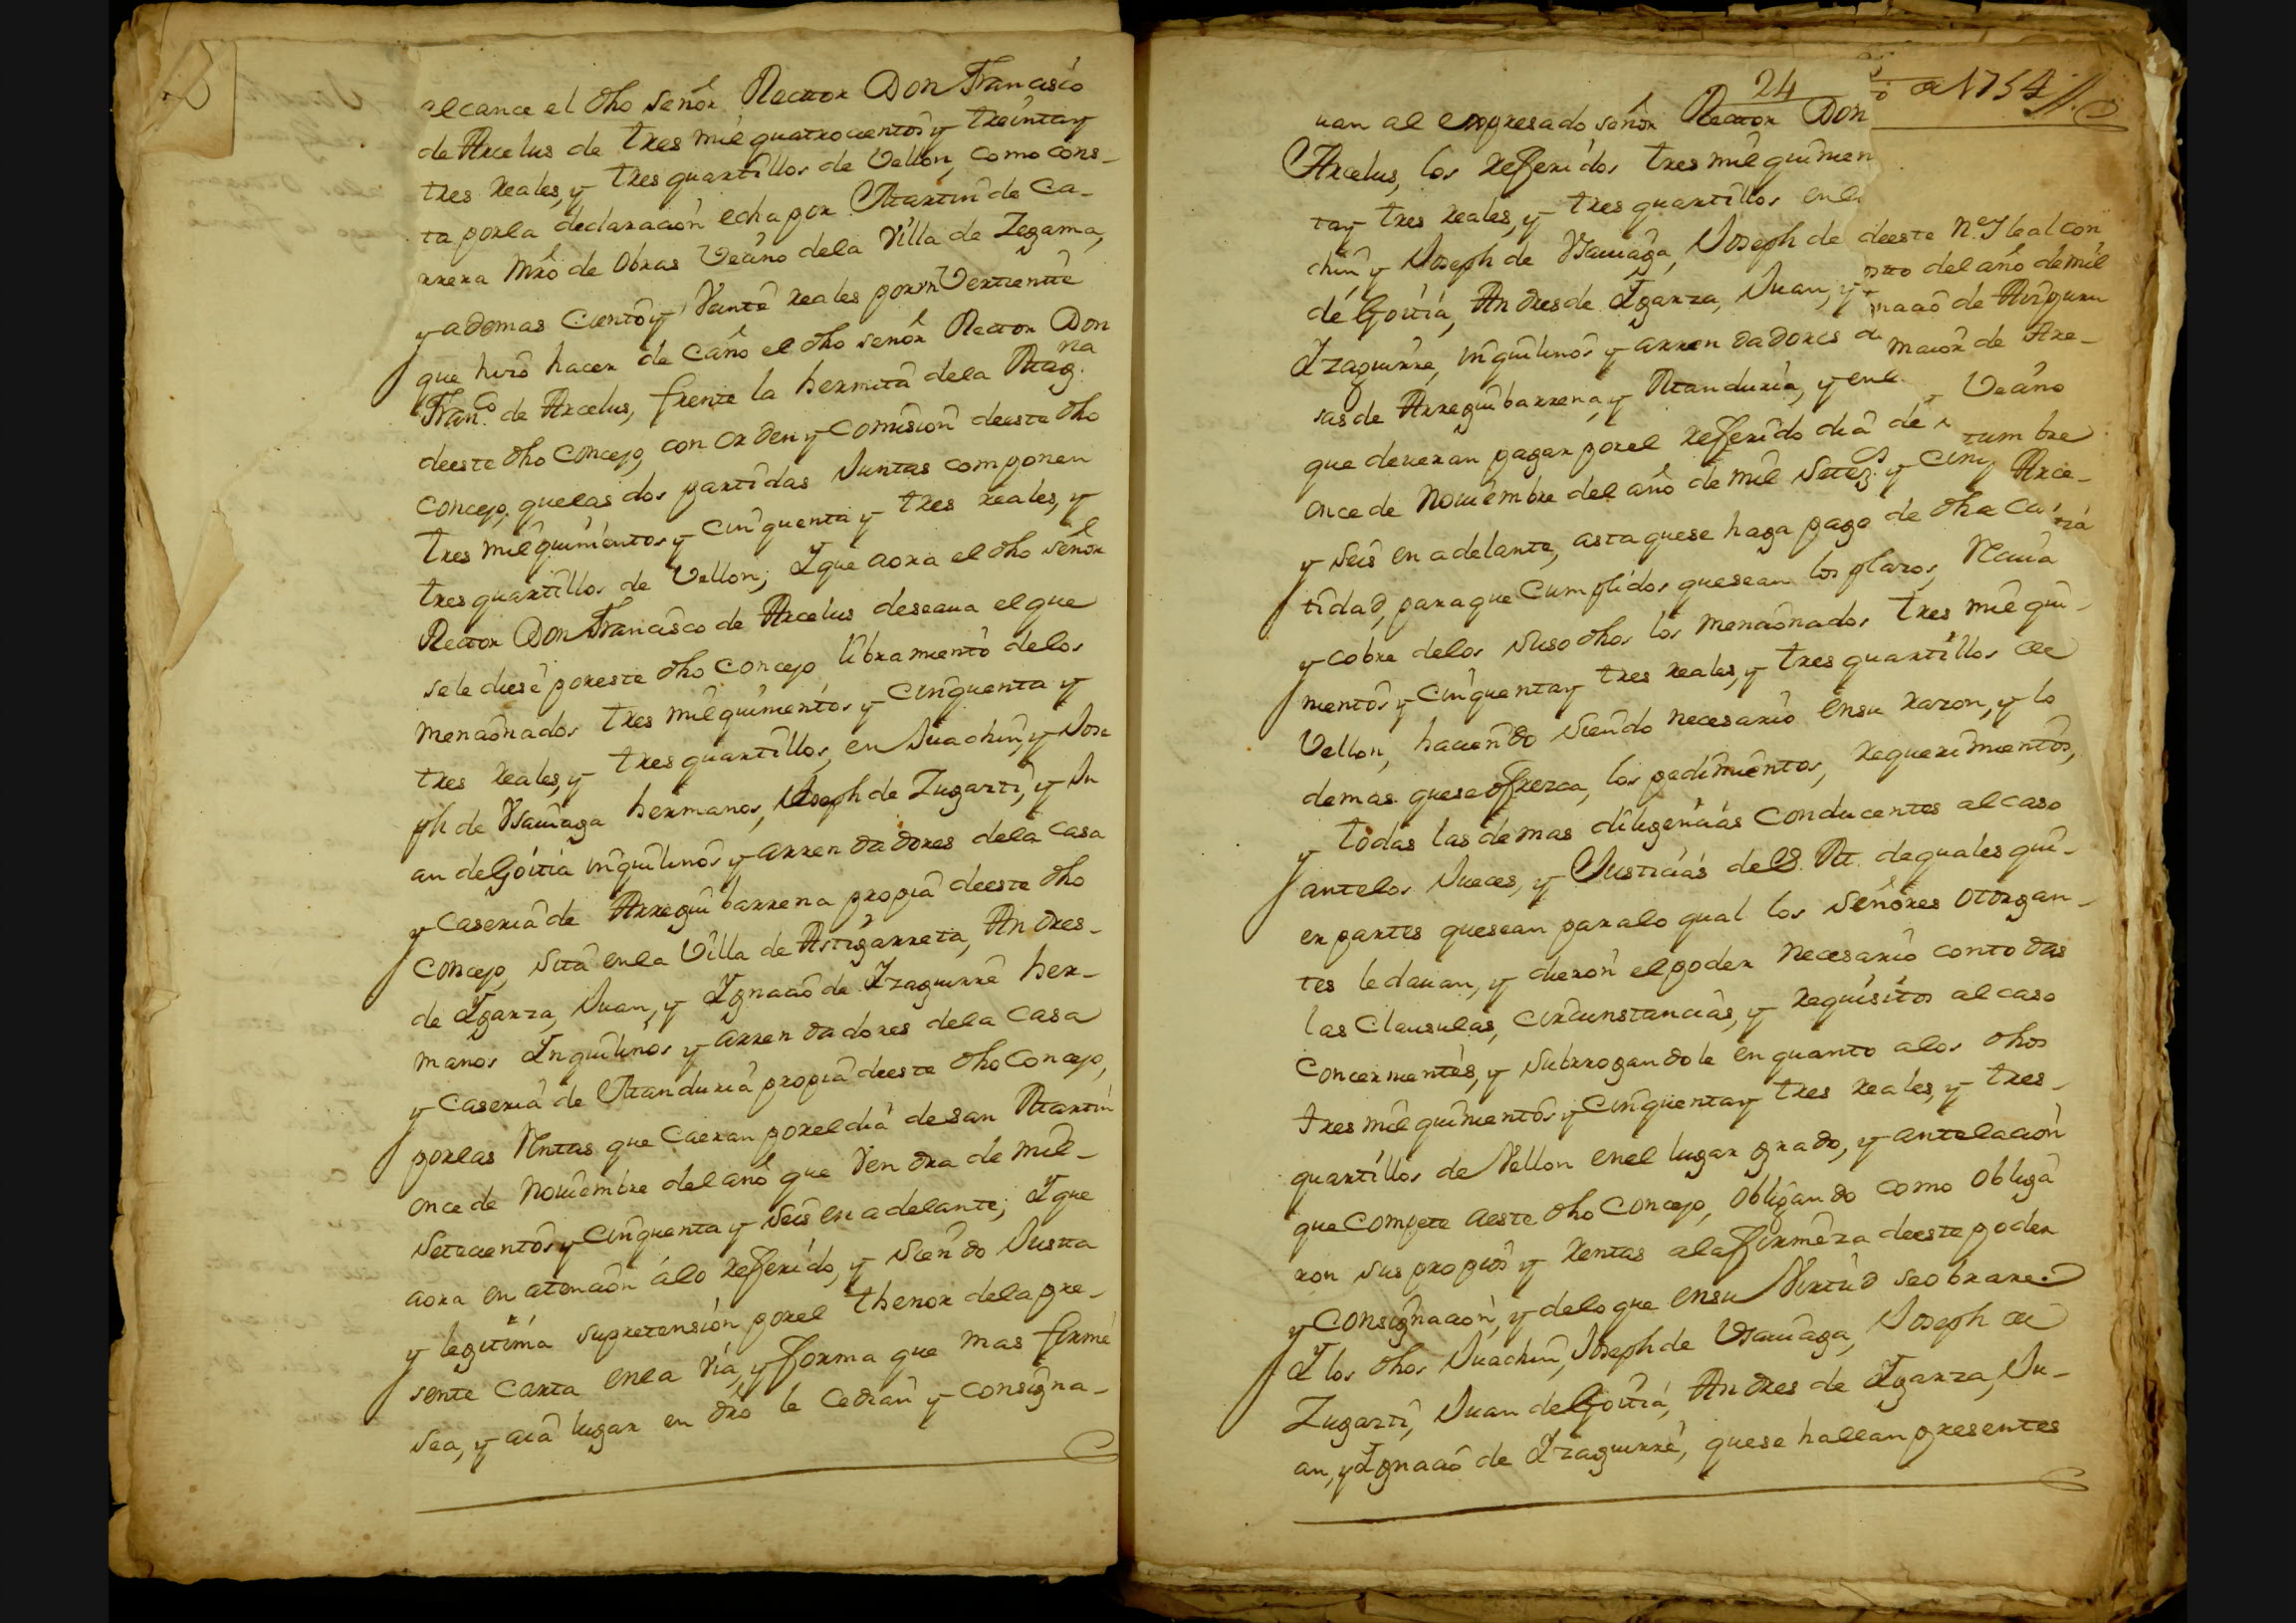 alcance el dho señor Rector Don Francisco
de Arcelus de tres mil quatrocientos y treinta y
tres reales, y tres quartillos de Vellon, como cons-
ta por la declaracion echa por Martin de Ca-
rrera Mro de Obras Vecino dela Villa de Zegama,
y ademas ciento y Veinte reales por vn Vertiente
que hizo hacer de Caño el dho señor Rector Don
Franco de Arcelus, frente la hermita dela Magna
de este dho Concejo, con orden y Comision de este dho
Concejo, que las dos partidas Juntas componen
tres mil quinientos y cinquenta y tres reales, y
tres quartillos de Vellon; Y que aora el dho señor
Rector Don Francisco de Arcelus deseaua el que
se le diese por este dho Concejo libramiento de los
mencionados tres mil quinientos y cinquenta y
tres reales, y tres quartillos, en Juachin, y Jose
ph de Vsauiaga hermanos, Joseph de Zugarti, y Ju
an de Goitia inquilinos y arrendadores dela Casa
y Caseria de Arreguibarrena propia de este dho
Concejo, sita en la Villa de Astigarreta, Andres-
de Yganza, Juan, y Ygnacio de Yzaguirre her-
manos Ynquilinos y arrendadores dela Casa
y Caseria de Manduria propia de este dho Concejo,
por las Rentas que Caeran por el dia de san Martin
once de Nouiembre del año que Vendra de mil-
setecientos y cinquenta y seis en adelante; Y que
aora en atencion a lo refferido, y siendo Justa
y legitima su pretension por el thenor dela pre-
sente Carta en la via, y forma que mas firme
sea, y aia lugar en dro le Cedian y Consigna-
24
uan al expresado señor Rector Don
Arcelus, los refferidos tres mil quinien
tay tres reales, y tres quartillos en el
chin, y Joseph de Vsauiaga, Joseph de
de Goitia, Andres de Yganza, Juan, y
Yzaguirre, inquilinos y arrendadores de
sas de Arreguibarrena, y Manduria, y en el
que deueran pagar por el refferido dia de
once de Nouiembre del año de mil Setezs y Cinq
y Seis en adelante, asta que se haga pago de dha Can
tidad, para que Cumplidos que sean los plazos, Reciua
y cobre delos susodhos los mencionados tres mil qui-
nientos y cinquenta y tres reales, y tres quartillos de
Vellon, haciendo siendo necesario en su razon, y lo
demas que se ofrezca, los pedimientos, requerimientos,
y todas las demas diligencias Conducentes al caso
ante los Jueces, y Justicias de S. M. de quales qui-
er partes que sean para lo qual los Señores Otorgan-
tes le dauan, y dieron el poder necesario con todas
las Clausulas, circunstancias, y requisitos al caso
Concernientes, y Subrrogandole en quanto a los dhos
tres mil quinientos y cinquenta y tres reales, y tres-
quartillos de Vellon en el lugar grado, y antelacion
que Compete a este dho Concejo, obligando como obliga
ron sus propios y rentas a la firmeza de este poder
y Consignacion, y de lo que en su Virtud se obrare.
Y los dhos Juachin, Joseph de Vsauiaga, Joseph de
Zugarti, Juan de Goitia, Andres de Yganza, Ju-
an, y Ygnacio de Yzaguirre, que se hallan presentes
a 1754
de este Nle y leal con
osto del año de mil
nacio de Aizpuru
maior de Are-
Vecino
tumbre
Arce-